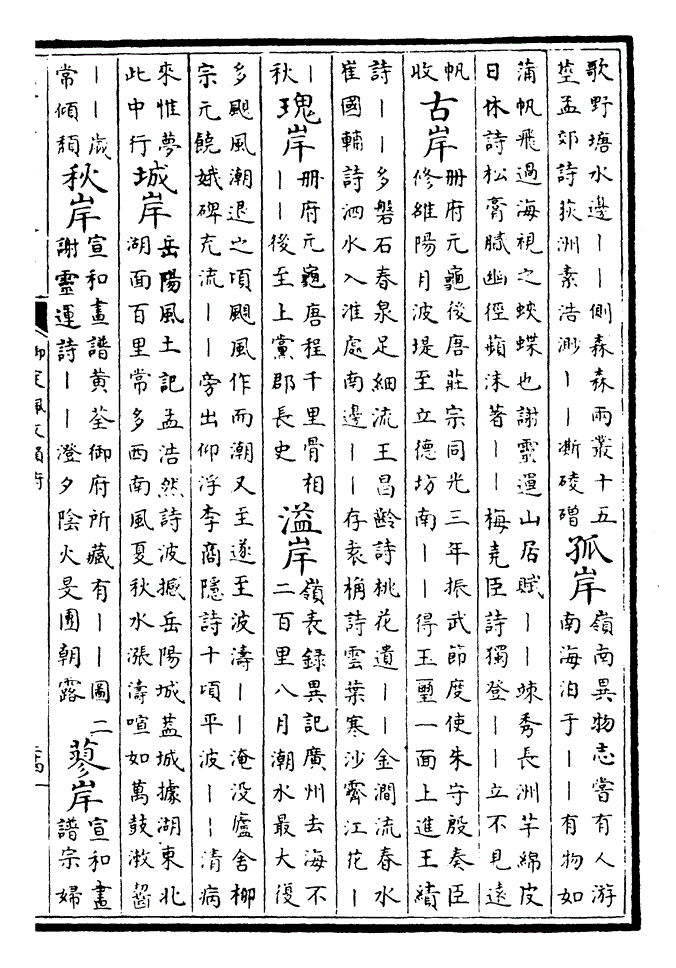 歌野塘水邊丨丨側森森雨叢十五
莖孟郊詩荻洲素浩渺丨丨澌碐磳
孤岸
嶺南異物志嘗有人游
南海泊于丨丨有物如
蒲帆飛過海視之蛺蝶也謝靈運山居賦丨丨竦秀長洲芊綿皮
日休詩松膏膩幽徑蘋沫著丨丨梅堯臣詩獨登丨丨立不見遠
帆
收
古岸
冊府元龜後唐莊宗同光三年振武節度使朱守殷奏臣
修雒陽月波堤至立德坊南丨丨得玉璽一面上進王績
詩丨丨多磐石春泉足細流王昌齡詩桃花遺丨丨金澗流春水
崔國輔詩泗水入淮處南邊丨丨存袁桷詩雲葉寒沙霽江花丨
丨
秋
瑰岸
冊府元龜唐程千里骨相
丨丨後至上黨郡長史
溢岸
嶺表錄異記廣州去海不
二百里八月潮水最大復
多颶風潮退之頃颶風作而潮又至遂至波濤丨丨淹没廬舍柳
宗元饒娥碑充流丨丨旁出仰浮李商隱詩十頃平波丨丨清病
來惟夢
此中行
城岸
岳陽風土記孟浩然詩波撼岳陽城葢城據湖東北
湖面百里常多西南風夏秋水漲濤喧如萬鼓潄齧
丨丨歲
常傾頹
秋岸
宣和畫譜黄荃御府所藏有丨丨圖二
謝靈運詩丨丨澄夕陰火旻團朝露
蓼岸
宣和畫
譜宗婦